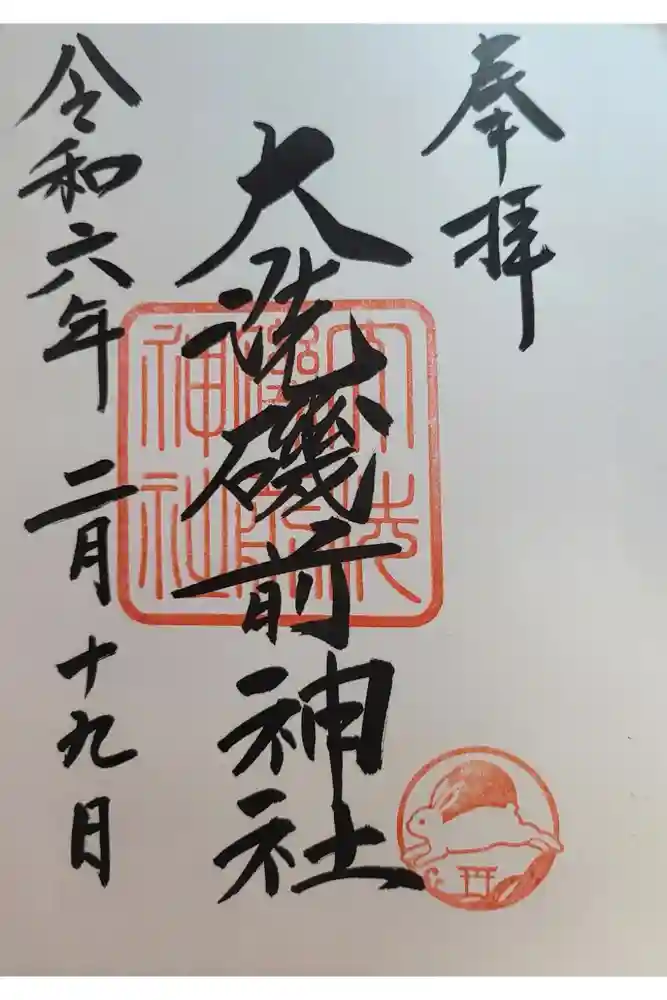 奉拝
大洗磯前神社
大洗磯前神社
令和六年 二月十九日